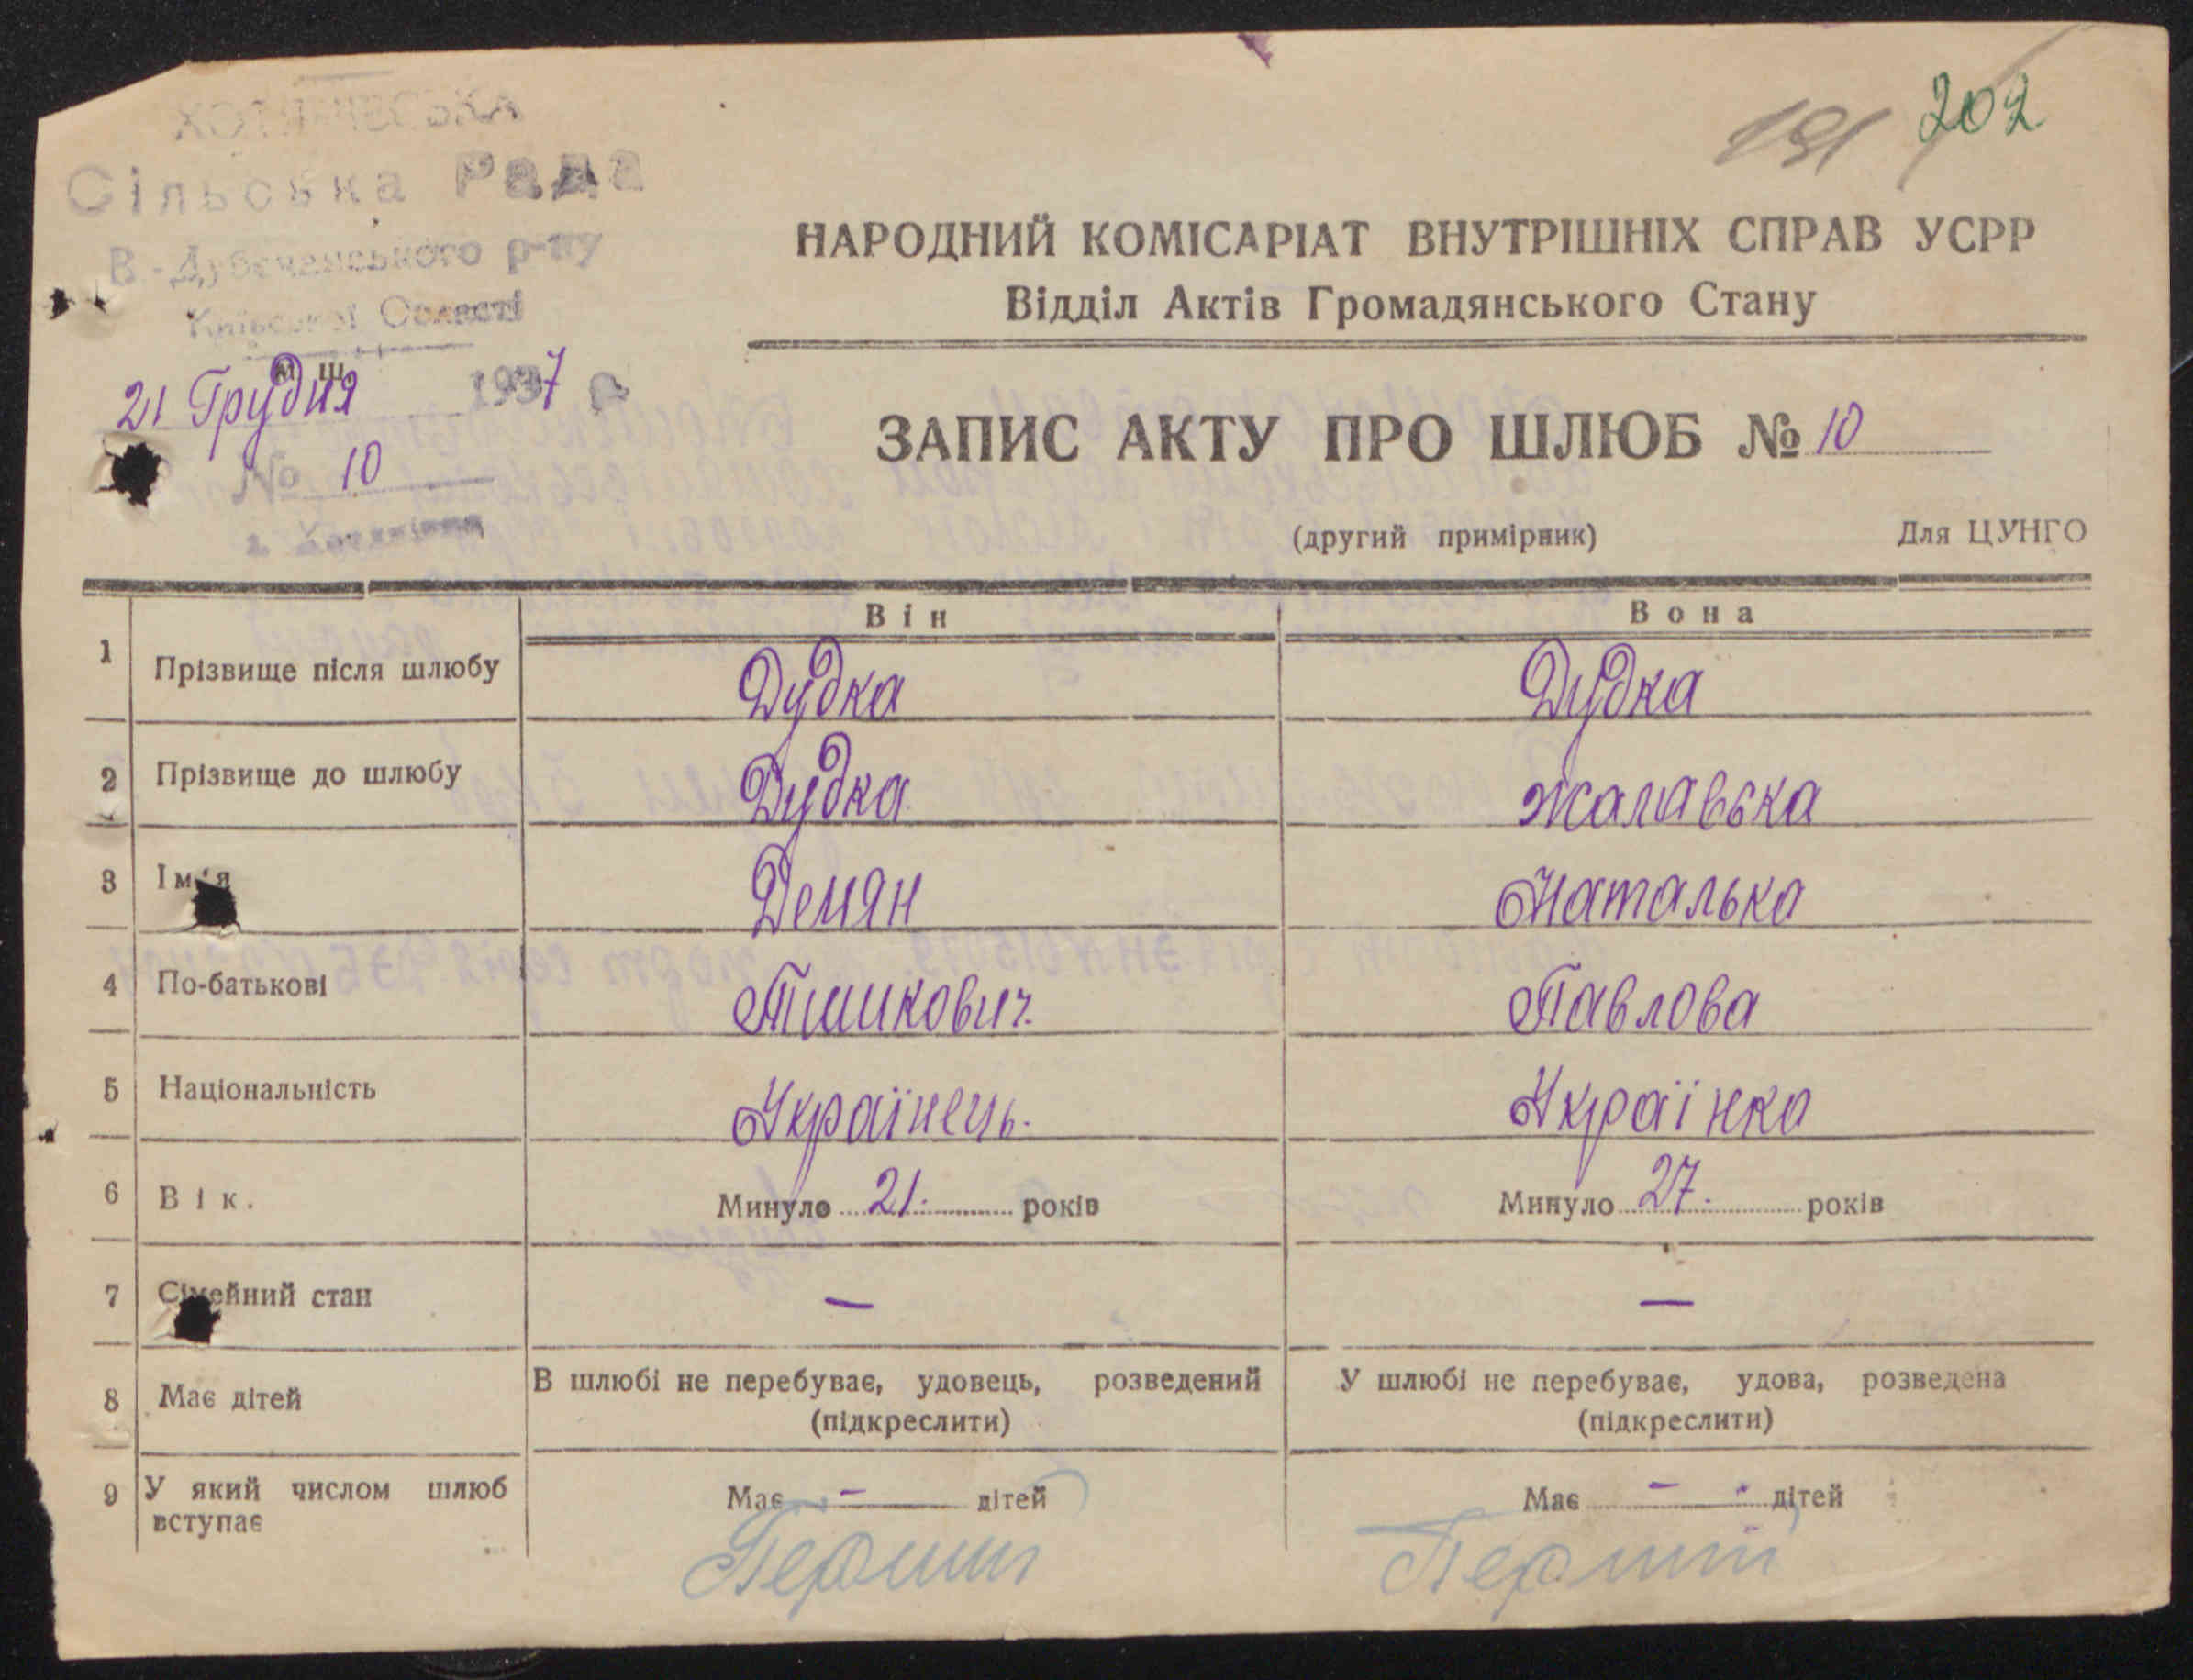 Сільська Рада
В.-Дубечанського р-ну
Київської Області
21 Грудня 1937 р
№ 10
191 202
НАРОДНИЙ КОМІСАРІАТ ВНУТРІШНІХ СПРАВ УСРР
Відділ Актів Громадянського Стану
ЗАПИС АКТУ ПРО ШЛЮБ № 10
(другий примірник) Для ЦУНГО
Він Вона
1 Прізвище після шлюбу Дудка Дудка
2 Прізвище до шлюбу Дудка Жалавська
3 Ім'я Демян Наталька
4 По-батькові Тишкович. Павлова
5 Національність Українець. Українка
6 Вік. Минуло 21. років Минуло 27. років
7 Сімейний стан — —
8 Має дітей В шлюбі не перебуває, удовець, розведений У шлюбі не перебуває, удова, розведена
(підкреслити) (підкреслити)
9 У який числом шлюб Має – дітей Має – дітей
вступає
Перший Перший